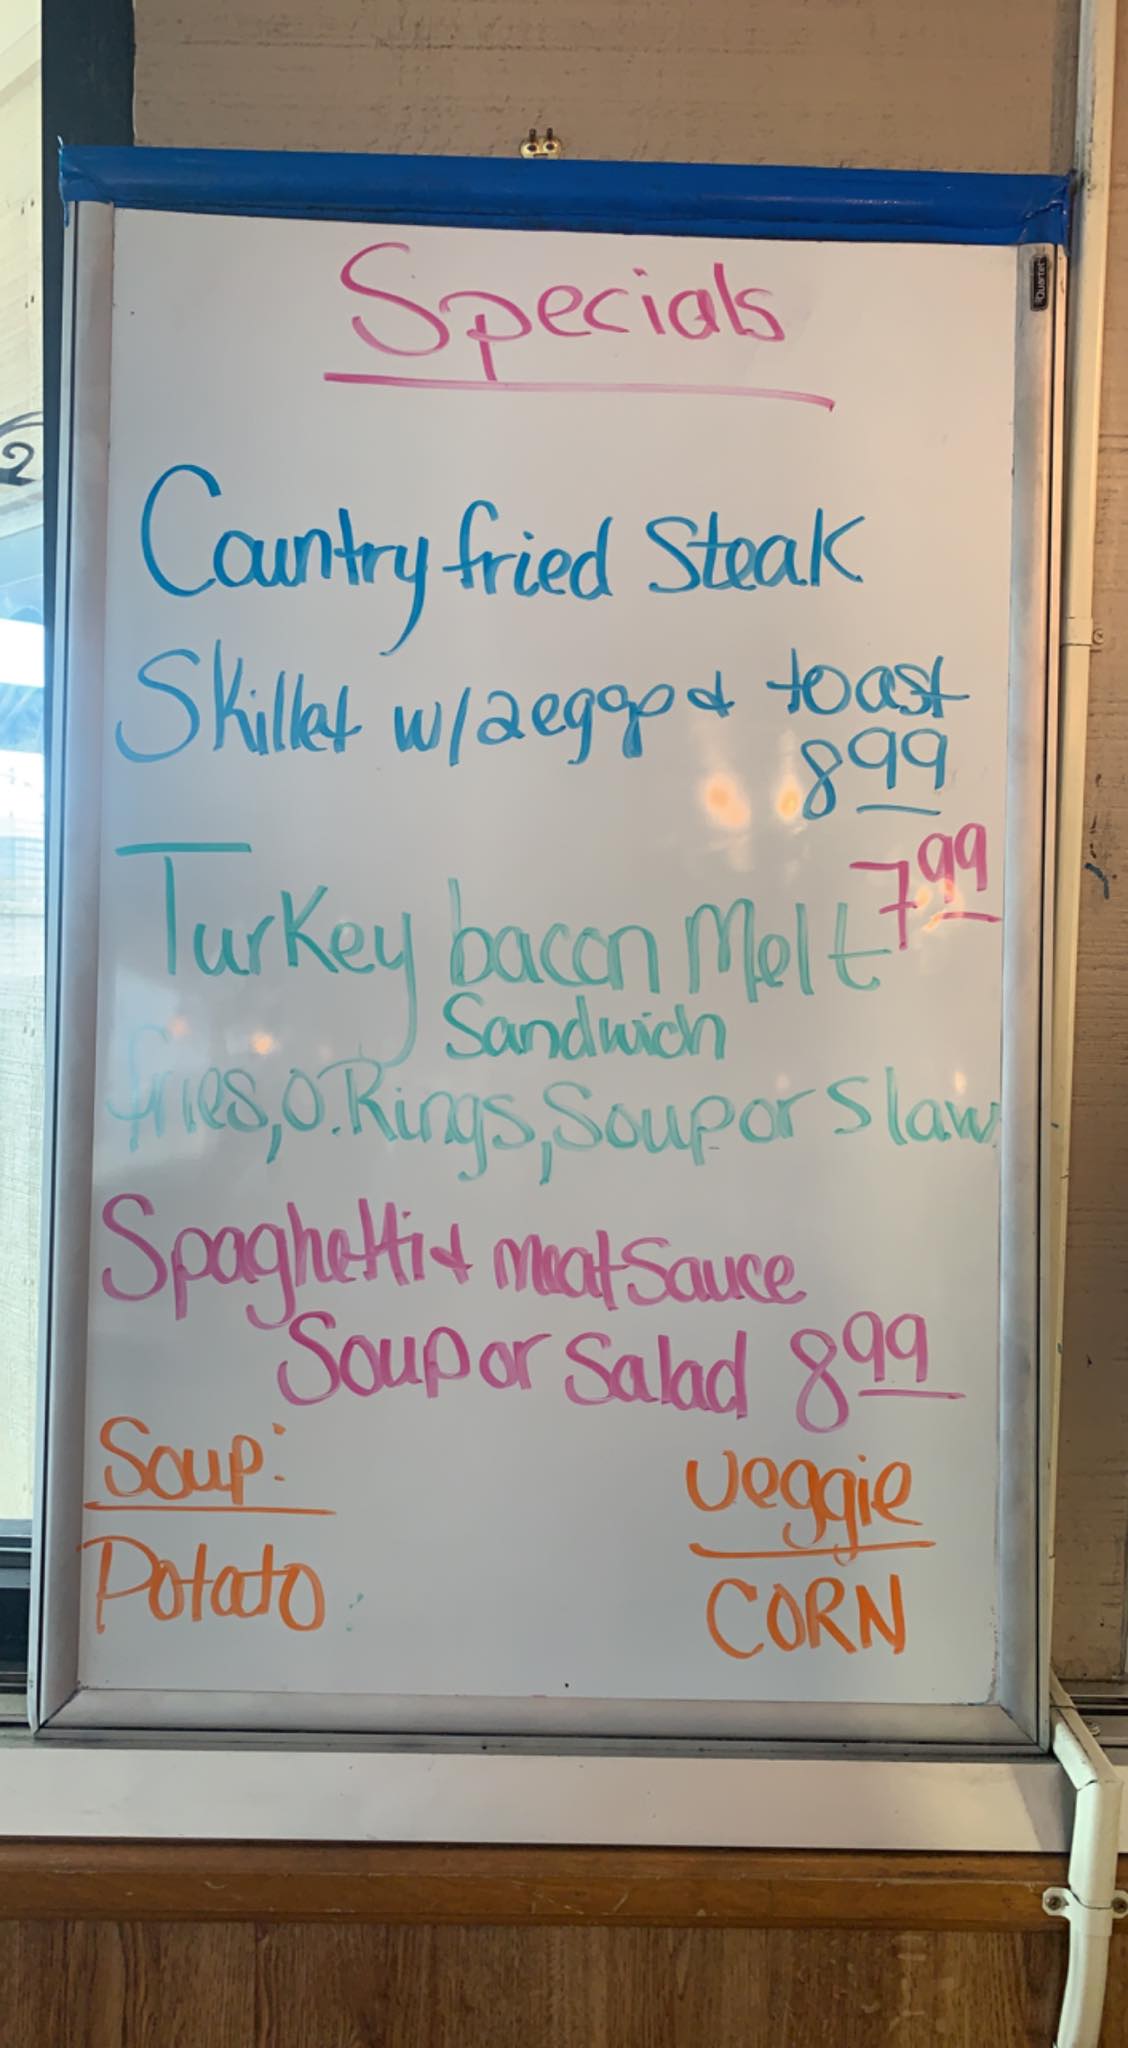 Quartet
Specials
Country fried Steak
Skillet w/2eggs & toast
8 99
Turkey bacon Melt 7 99
Sandwich
fries, O. Rings, Soup or Slaw
Spaghetti & meat Sauce
Soup or Salad 8 99
Soup: veggie
Potato CORN